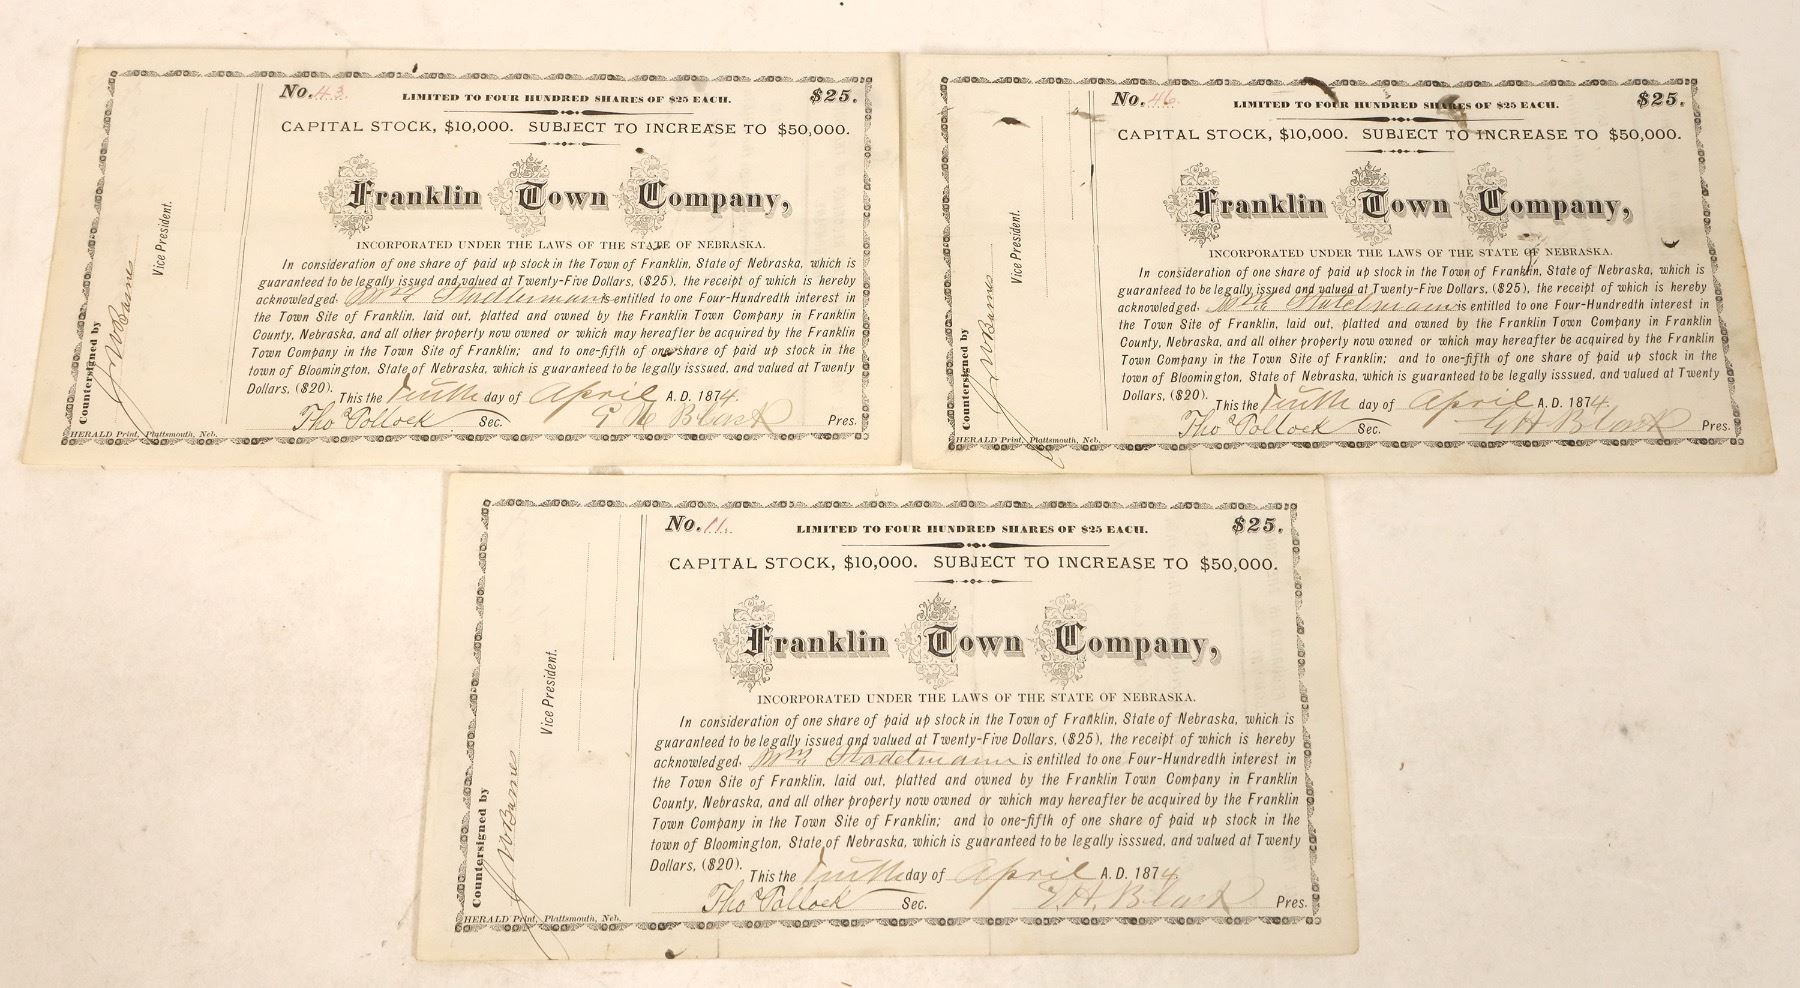 No. 43.
LIMITED TO FOUR HUNDRED SHARES OF $25 EACH.
$25.
CAPITAL STOCK, $10,000. SUBJECT TO INCREASE TO $50,000.
Franklin Town Company,
INCORPORATED UNDER THE LAWS OF THE STATE OF NEBRASKA.
In consideration of one share of paid up stock in the Town of Franklin, State of Nebraska, which is
guaranteed to be legally issued and valued at Twenty-Five Dollars, ($25), the receipt of which is hereby
acknowledged. Wm Stadelmann is entitled to one Four-Hundredth interest in
the Town Site of Franklin, laid out, platted and owned by the Franklin Town Company in Franklin
County, Nebraska, and all other property now owned or which may hereafter be acquired by the Franklin
Town Company in the Town Site of Franklin; and to one-fifth of one share of paid up stock in the
town of Bloomington, State of Nebraska, which is guaranteed to be legally isssued, and valued at Twenty
Dollars, ($20).
This the Tenth day of April A.D. 1874.
Thos Pollock Sec.
Pres.
Countersigned by
J W Barnes
Vice President.
HERALD Print, Plattsmouth, Neb.
No. 46.
LIMITED TO FOUR HUNDRED SHARES OF $25 EACH.
$25.
CAPITAL STOCK, $10,000. SUBJECT TO INCREASE TO $50,000.
Franklin Town Company,
INCORPORATED UNDER THE LAWS OF THE STATE OF NEBRASKA.
In consideration of one share of paid up stock in the Town of Franklin, State of Nebraska, which is
guaranteed to be legally issued and valued at Twenty-Five Dollars, ($25), the receipt of which is hereby
acknowledged. Wm Stadelmann is entitled to one Four-Hundredth interest in
the Town Site of Franklin, laid out, platted and owned by the Franklin Town Company in Franklin
County, Nebraska, and all other property now owned or which may hereafter be acquired by the Franklin
Town Company in the Town Site of Franklin; and to one-fifth of one share of paid up stock in the
town of Bloomington, State of Nebraska, which is guaranteed to be legally isssued, and valued at Twenty
Dollars, ($20).
This the Tenth day of April A.D. 1874.
Thos Pollock Sec.
Pres.
Countersigned by
J W Barnes
Vice President.
HERALD Print, Plattsmouth, Neb.
No. 11.
LIMITED TO FOUR HUNDRED SHARES OF $25 EACH.
$25.
CAPITAL STOCK, $10,000. SUBJECT TO INCREASE TO $50,000.
Franklin Town Company,
INCORPORATED UNDER THE LAWS OF THE STATE OF NEBRASKA.
In consideration of one share of paid up stock in the Town of Franklin, State of Nebraska, which is
guaranteed to be legally issued and valued at Twenty-Five Dollars, ($25), the receipt of which is hereby
acknowledged. Wm Stadelmann is entitled to one Four-Hundredth interest in
the Town Site of Franklin, laid out, platted and owned by the Franklin Town Company in Franklin
County, Nebraska, and all other property now owned or which may hereafter be acquired by the Franklin
Town Company in the Town Site of Franklin; and to one-fifth of one share of paid up stock in the
town of Bloomington, State of Nebraska, which is guaranteed to be legally isssued, and valued at Twenty
Dollars, ($20).
This the Tenth day of April A.D. 1874.
Thos Pollock Sec.
Pres.
Countersigned by
J W Barnes
Vice President.
HERALD Print, Plattsmouth, Neb.